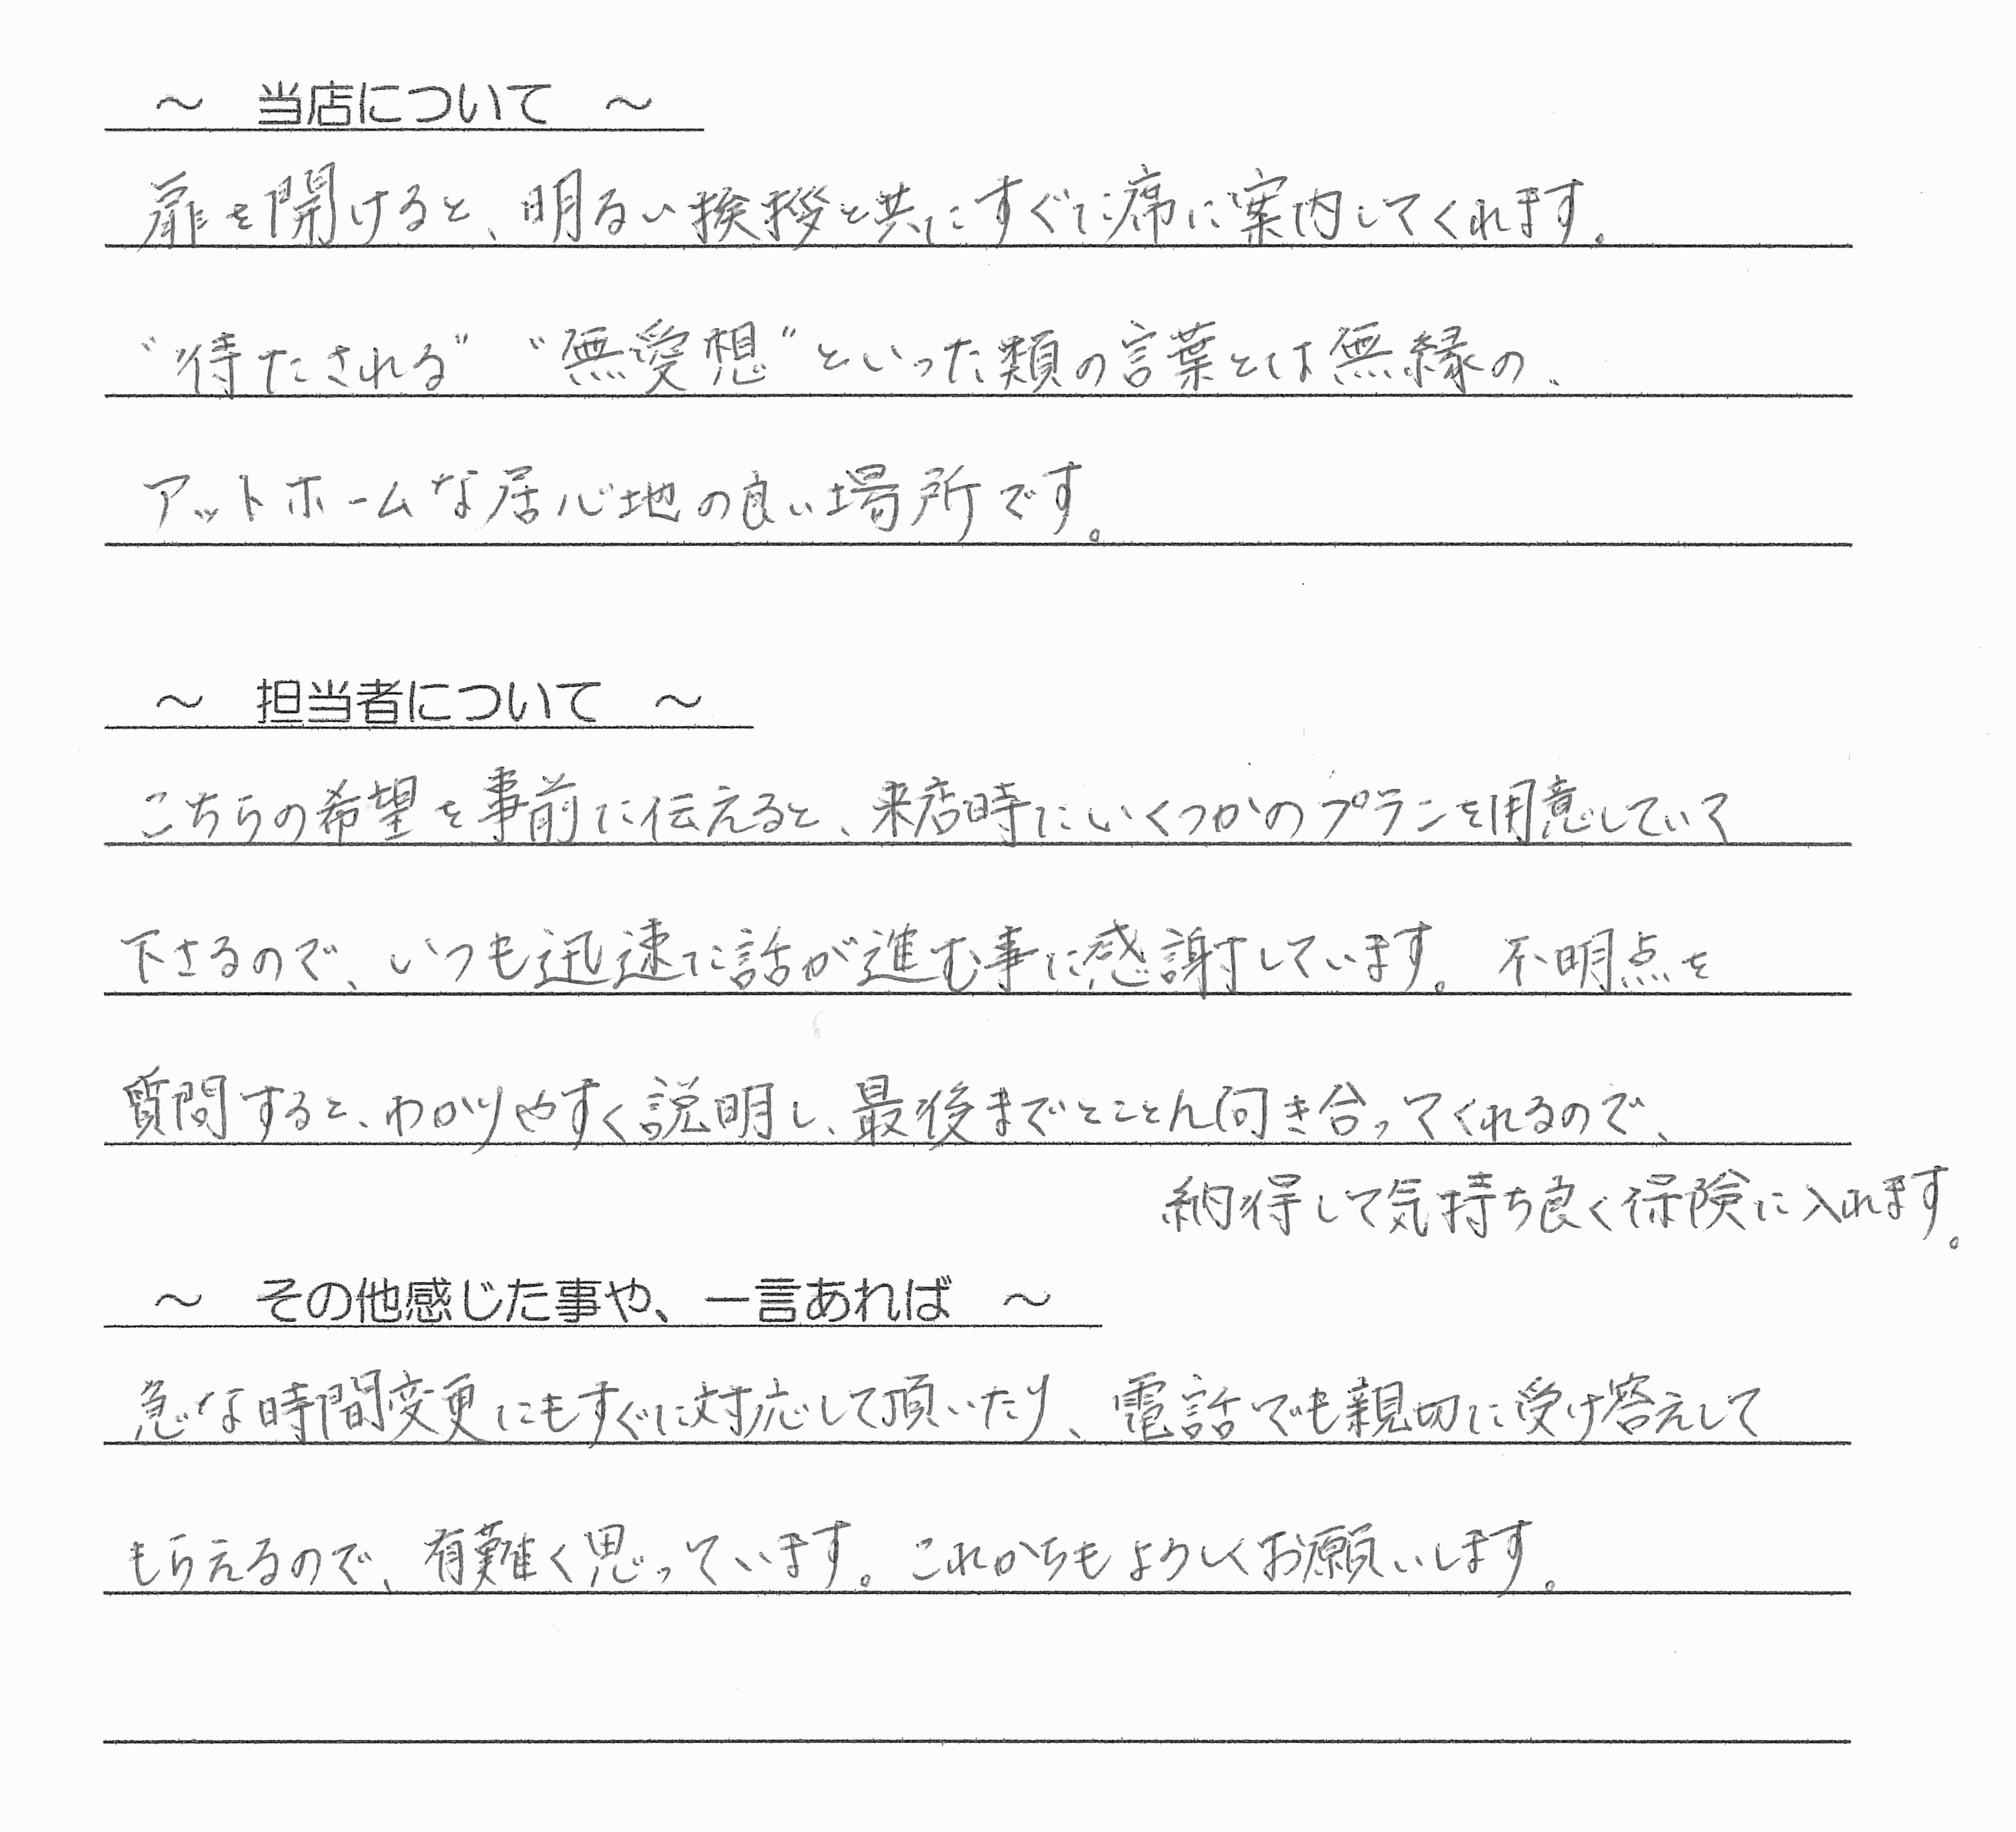 ～　当店について　～
扉を開けると、明るい挨拶と共にすぐに席に案内してくれます。
“待たされる” “無愛想”といった類の言葉とは無縁の、
アットホームな居心地の良い場所です。
～　担当者について　～
こちらの希望を事前に伝えると、来店時にいくつかのプランを用意していて
下さるので、いつも迅速に話が進む事に感謝しています。不明点を
質問すると、わかりやすく説明し、最後までとことん向き合ってくれるので、
納得して気持ち良く保険に入れます。
～　その他感じた事や、一言あれば　～
急な時間変更にもすぐに対応して頂いたり、電話でも親切に受け答えして
もらえるので、有難く思っています。これからもよろしくお願いします。